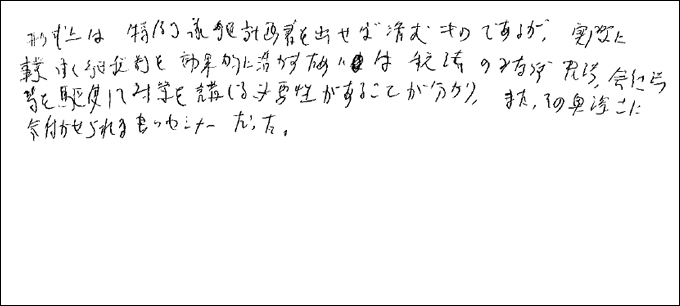 形式上は 特例承継計画書を出せば済むものであるが、実際に
事業承継税制を効果的に活かす為には税法のみならず民法、会社法
等を駆使して対策を講じる必要性があることが分かり、また、その奥深さに
気付かせられる セミナーだった。